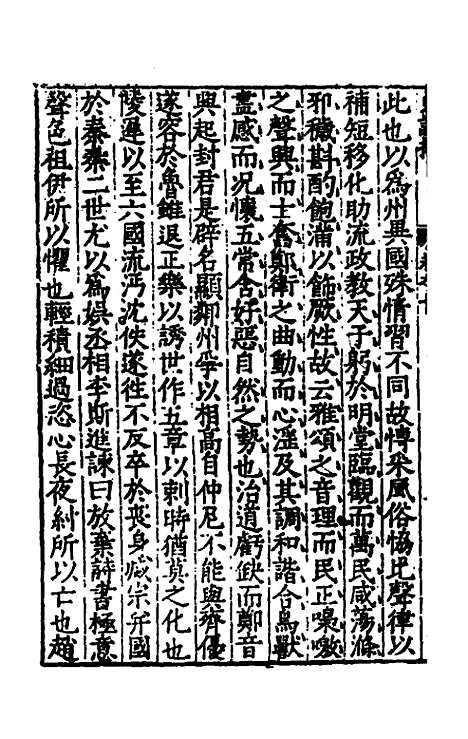 此也以爲州異國殊情習不同故慱采風俗協比聲律以
補短移化助流政教天子躬於明堂臨觀而萬民咸蕩滌
邪穢斟酌飽滿以飾厥性故云雅頌之音理而民正嘄噭
之聲興而士奮鄭衛之曲動而心淫及其調和諧合鳥獸
盡感而况懷五常含好惡自然之勢也治道虧缺而鄭音
興起封君世辟名顯鄰州爭以相高自仲尼不能與齊優
遂容於魯雖退正樂以誘世作五章以刺時猶莫之化也
陵遲以至六國流沔沈佚遂徃不反卒於喪身滅宗并國
於秦秦二世尤以爲娛丞相李斯進諫曰放棄詩書極意
聲色祖伊所以懼也輕積細過恣心長夜紂所以亡也趙